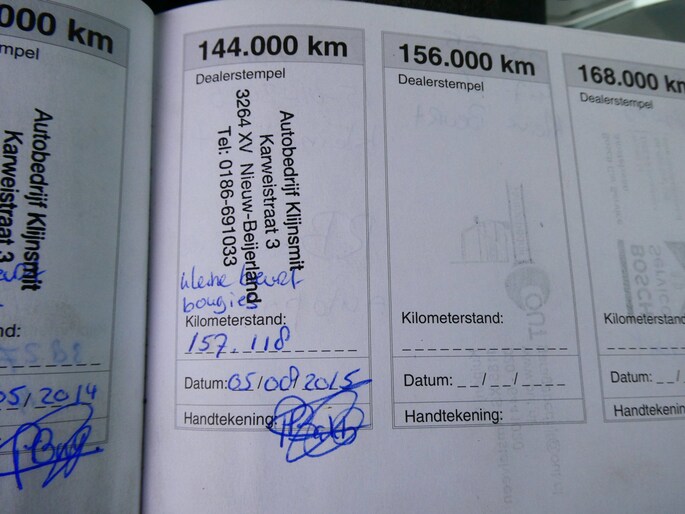 000 km
mpel
Autobedrijf Klijnsmit
Karweistraat 3
nd:
05/2014
144.000 km
Dealerstempel
Autobedrijf Klijnsmit
Karweistraat 3
3264 XV Nieuw-Beijerland
Tel: 0186-691033
kleine beurt
bougies
Kilometerstand:
157.118
Datum: 05/08/2015
Handtekening:
156.000 km
Dealerstempel
Kilometerstand:
Datum: __/__/____
Handtekening:
168.000 km
Dealerstempel
Kilometerstand:
Datum: __/
Handtekening